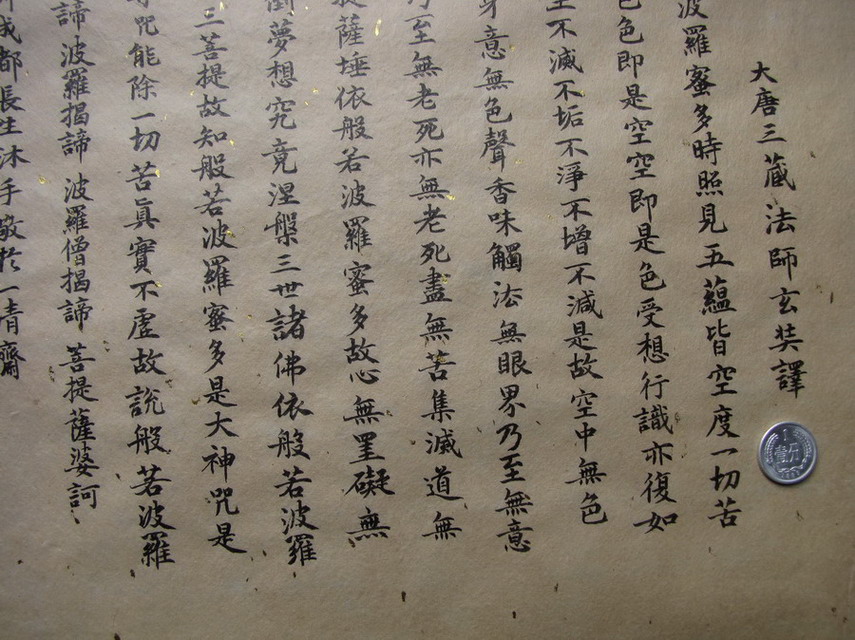 大唐三藏法師玄奘譯
波羅蜜多時照見五蘊皆空度一切苦
色即是空空即是色受想行識亦復如
不滅不垢不淨不增不減是故空中無色
身意無色聲香味觸法無眼界乃至無意
乃至無老死亦無老死盡無苦集滅道無
提薩埵依般若波羅蜜多故心無罣礙無
倒夢想究竟涅槃三世諸佛依般若波羅
三菩提故知般若波羅蜜多是大神咒是
咒能除一切苦真實不虛故說般若波羅
諦 波羅揭諦 波羅僧揭諦 菩提薩婆訶
成都長生沐手敬於一清齋
壹分